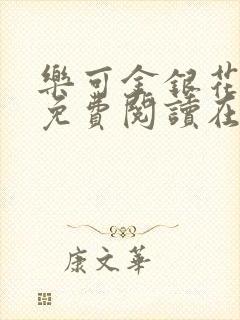 樂可金銀花
免費閱讀在
康文華